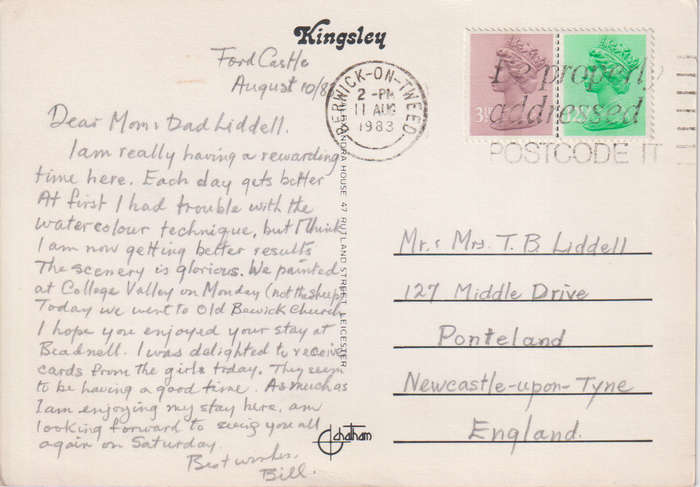 Kingsley
Ford Castle
August 10/83
Dear Mom & Dad Liddell.
I am really having a rewarding
time here. Each day gets better
At first I had trouble with the
watercolour technique, but I think
I am now getting better results
The scenery is glorious. We painted
at College Valley on Monday (not the sheep)
Today we went to Old Bewick Church
I hope you enjoyed your stay at
Beadnell. I was delighted to receive
cards from the girls today. They seem
to be having a good time. As much as
I am enjoying my stay here, am
looking forward to seeing you all
again on Saturday.
Best wishes.
Bill.
BERWICK-ON-TWEED
2-PM
11 AUG
1983
Be properly
addressed
POSTCODE IT
ALEXANDRA HOUSE 47 RUTLAND STREET, LEICESTER.
Chatham
Mr. & Mrs. T.B. Liddell
127 Middle Drive
Ponteland
Newcastle-upon-Tyne
England.